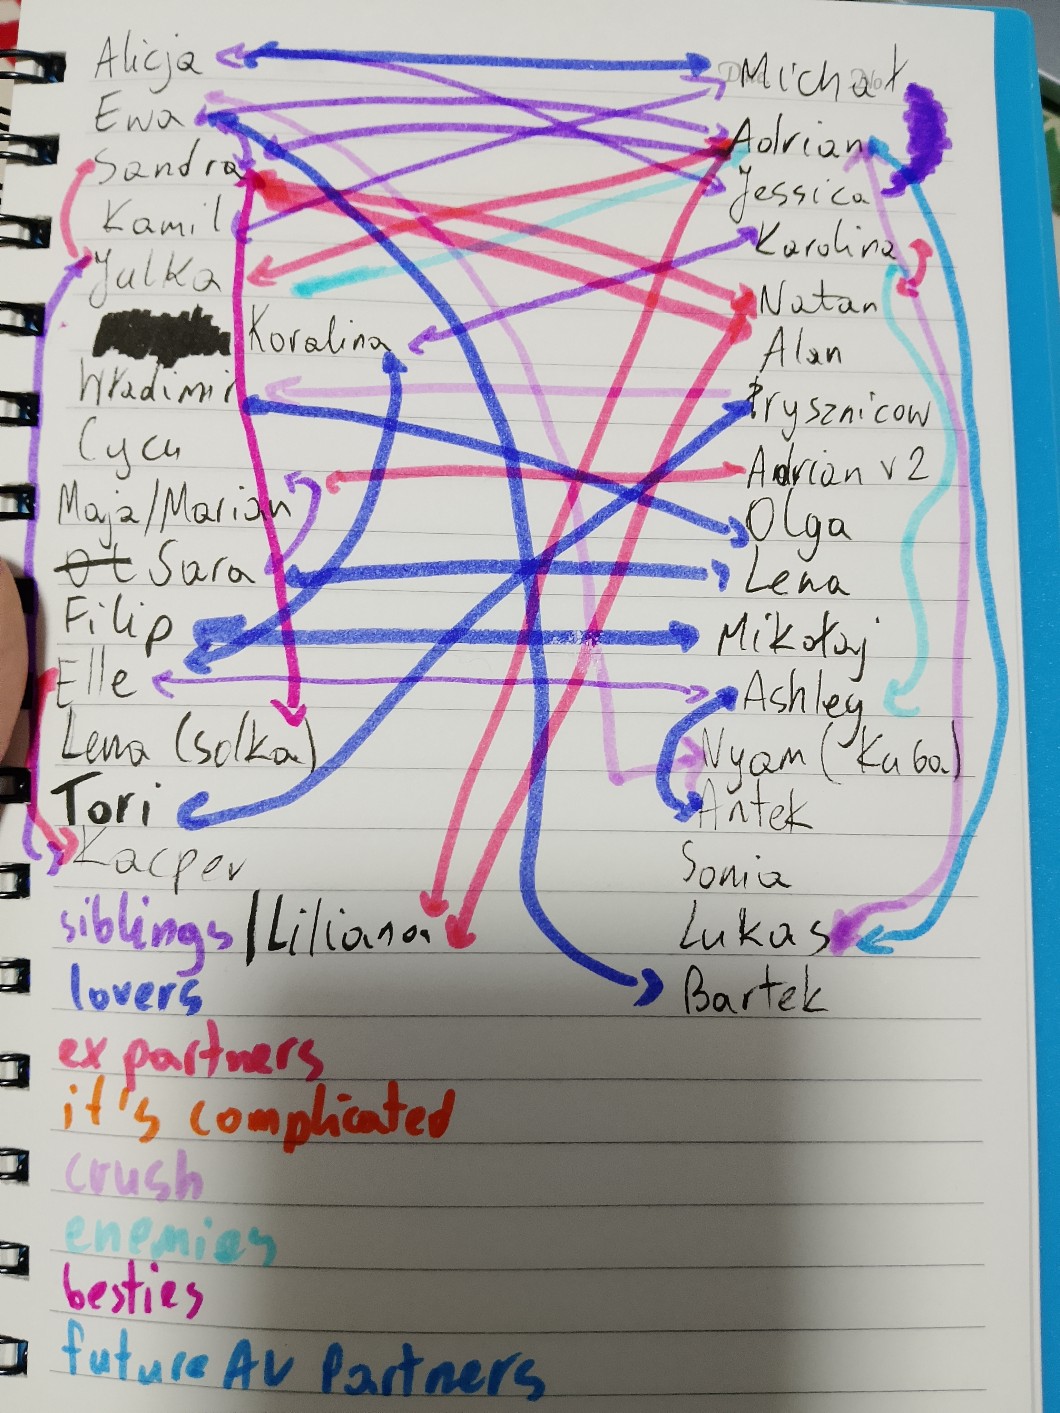 Alicja Michał
Ewa Adrian
Sandra Jessica
Kamil Karolina
Julka Natan
Koralina Alan
Władimir Prysznicow
Cycu Adrian v2
Maja/Marian Olga
Sara Lena
Filip Mikołaj
Elle Ashley
Lena (solka) Nyam (Kuba)
Tori Antek
Kacper Sonia
siblings /Liliana Lukas
lovers Bartek
ex partners
it's complicated
crush
enemies
besties
future AU Partners